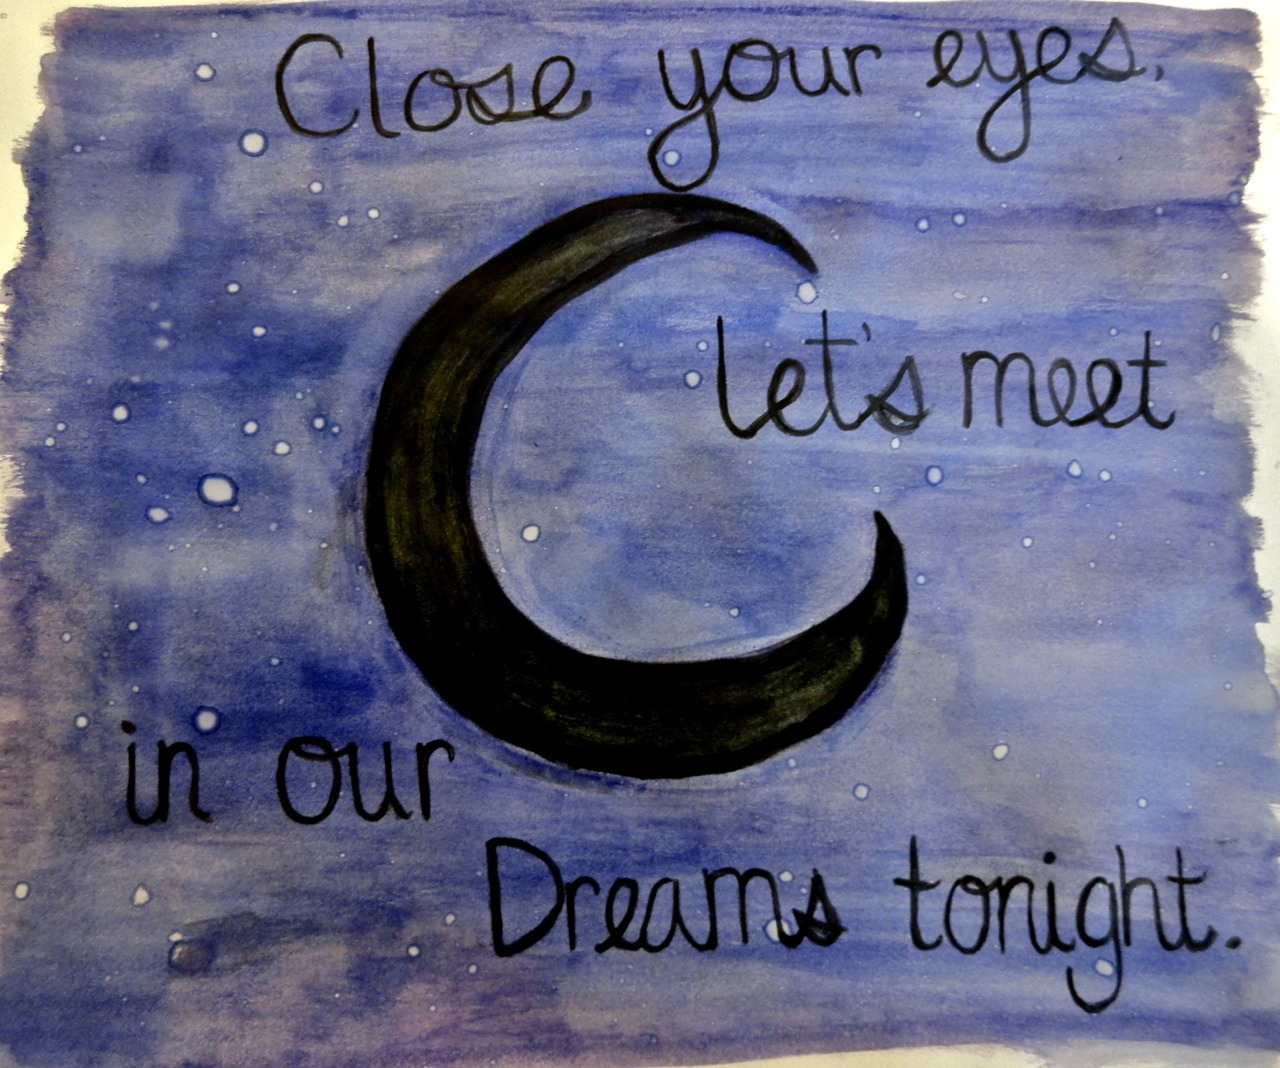 Close your eyes.
let's meet
in our
Dreams tonight.